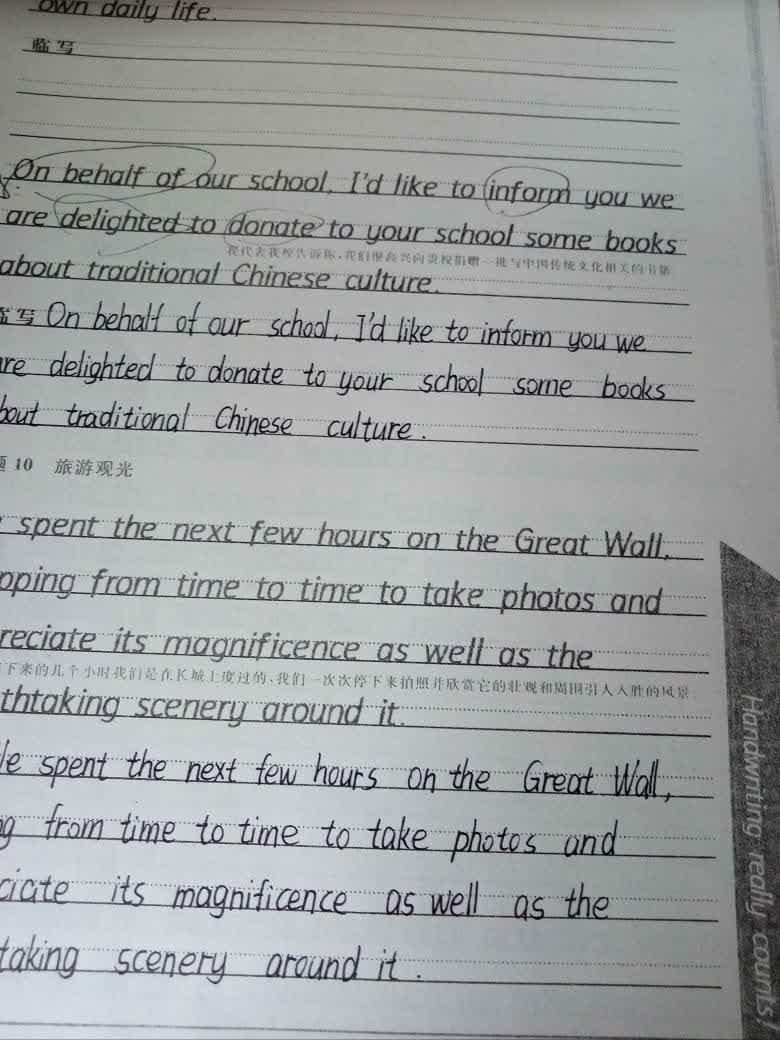 own daily life.
临写
On behalf of our school, I'd like to inform you we
are delighted to donate to your school some books
我代表我校告诉你,我们很高兴向贵校捐赠一批与中国传统文化相关的书籍
about traditional Chinese culture.
临写 On behalf of our school, I'd like to inform you we
are delighted to donate to your school some books
bout traditional Chinese culture.
题 10 旅游观光
spent the next few hours on the Great Wall,
pping from time to time to take photos and
reciate its magnificence as well as the
下来的几个小时我们是在长城上度过的,我们一次次停下来拍照并欣赏它的壮观和周围引人入胜的风景
thtaking scenery around it.
le spent the next few hours on the Great Wall,
g from time to time to take photos and
ciate its magnificence as well as the
taking scenery around it.
Handwriting really counts!